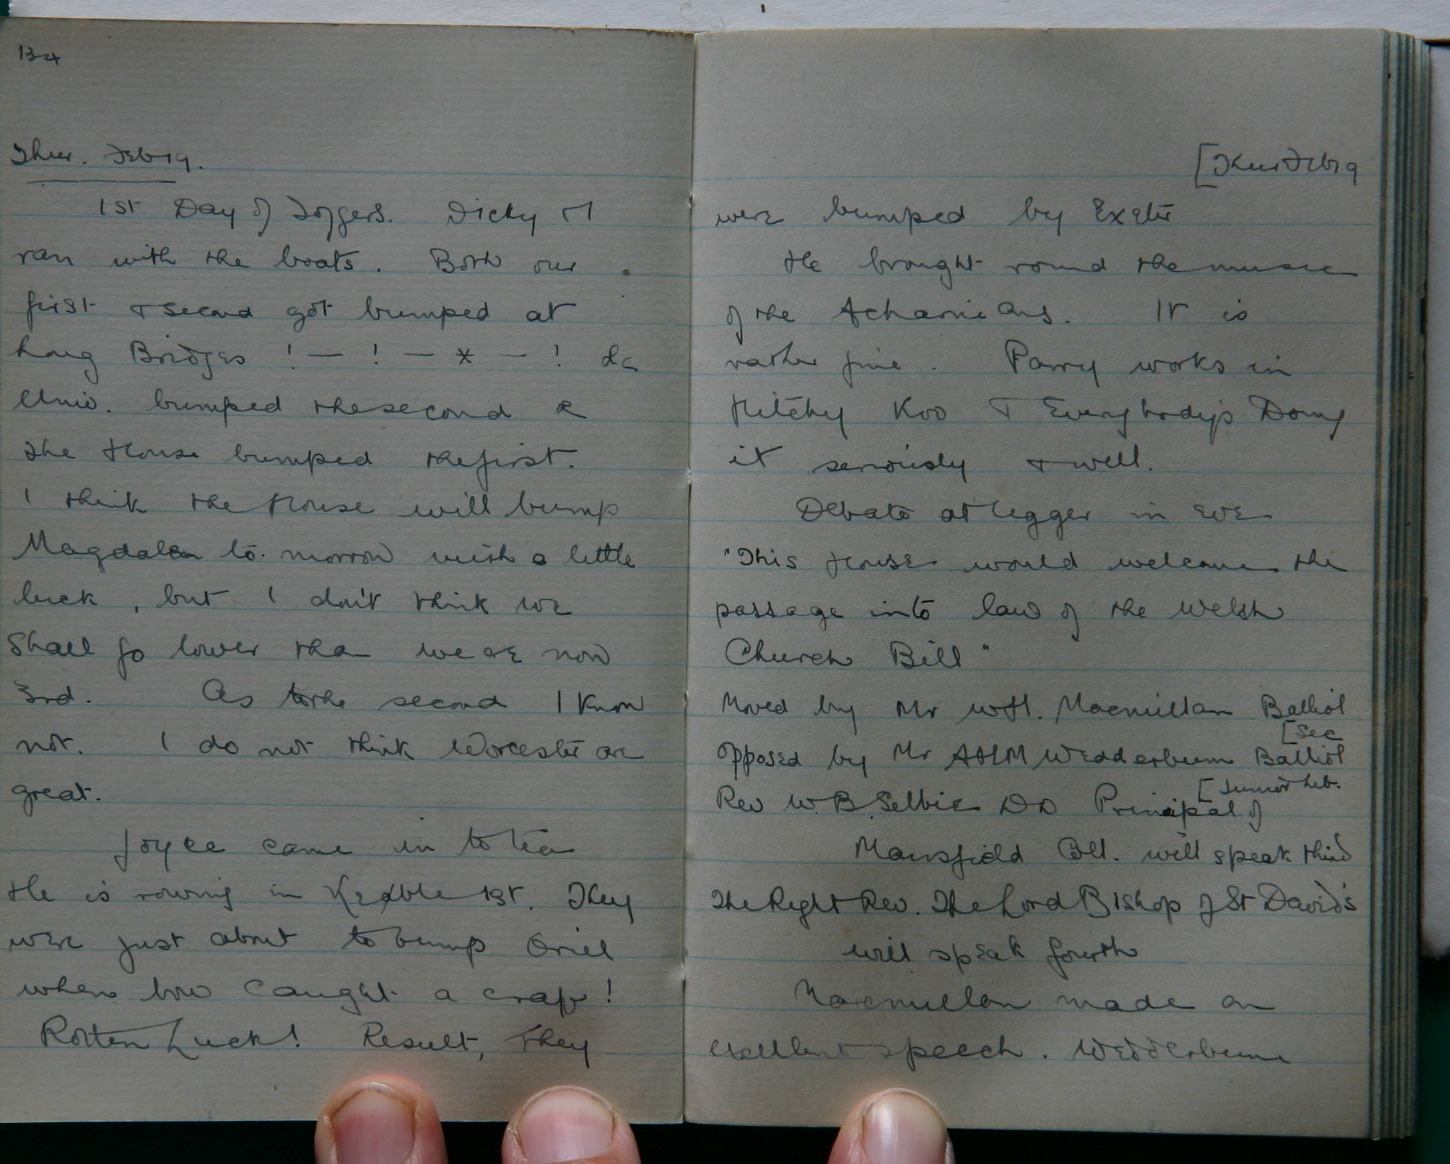 134
Thur. Feb 19.
1st Day of Toggers. Dicky & I
ran with the boats. Both our
first & second got bumped at
Long Bridges ! — ! — * — ! &c
Univ. bumped the second &
the House bumped the first.
I think the House will bump
Magdalen to-morrow with a little
luck, but I don't think we
shall go lower than we are now
3rd. As to the second I know
not. I do not think Worcester are
great.
Joyce came in to tea
He is rowing in Keble 1st. They
were just about to bump Oriel
when bow caught a crab!
Rotten Luck! Result, they
[Thur Feb 19
were bumped by Exeter
He brought round the music
of the Acharnians. It is
rather fine. Parry works in
Hitchy Koo & Everybody's Doing
it seriously & well.
Debate at in eve
"This House would welcome the
passage into law of the Welsh
Church Bill"
Moved by Mr W H. Macmillan Balliol
[Sec
opposed by Mr AHM Wedderburn Balliol
[Junior Lib.
Rev W.B. Selbie DD Principal of
Mansfield Coll. will speak third
The Right Rev. The Lord Bishop of St David's
will speak fourth
Macmillan made an
excellent speech. Wedderburn